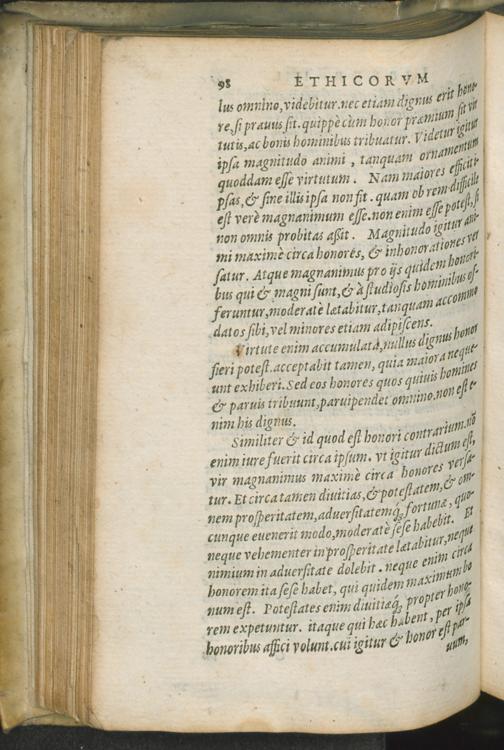 98 ETHICORVM
lus omnino, videbitur. nec etiam dignus erit hono-
re, si prauus sit. quippè cùm honor præmium sit vir
tutis, ac bonis hominibus tribuatur. Videtur igitur
ipsa magnitudo animi, tanquam ornamentum
quoddam esse virtutum. Nam maiores efficit i-
psas, & sine illis ipsa non fit. quam ob rem difficile
est verè magnanimum esse. non enim esse potest, si
non omnis probitas aßit. Magnitudo igitur ani-
mi maximè circa honores, & inhonorationes ver
satur. Atque magnanimus pro ijs quidem honori-
bus qui & magni sunt, & à studiosis hominibus of-
feruntur, moderatè lætabitur, tanquam accommo
datos sibi, vel minores etiam adipiscens.
Virtute enim accumulata, nullus dignus honor
fieri potest. acceptabit tamen, quia maiora neque-
unt exhiberi. Sed eos honores quos quiuis homines
& paruis tribuunt, paruipendet omnino. non est e-
nim his dignus.
Similiter & id quod est honori contrarium. nõ
enim iure fuerit circa ipsum. vt igitur dictum est,
vir magnanimus maximè circa honores versa-
tur. Et circa tamen diuitias, & potestatem, & om-
nem prosperitatem, aduersitatemq́; fortunæ, quo-
cunque euenerit modo, moderatè sese habebit. Et
neque vehementer in prosperitate lætabitur, neque
nimium in aduersitate dolebit. neque enim circa
honorem ita sese habet, qui quidem maximum bo
num est. Potestates enim diuitiæq́; propter hono-
rem expetuntur. itaque qui hæc habent, per ipsa
honoribus affici volunt. cui igitur & honor est par-
uum,